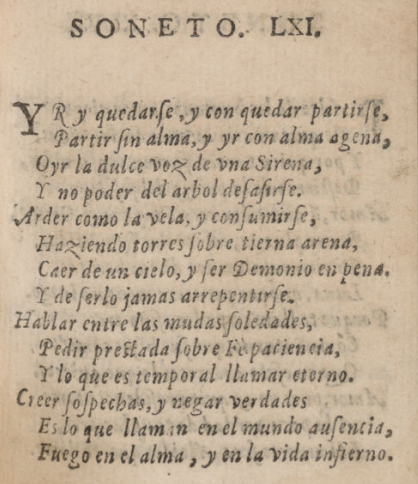 SONETO. LXI.
YR y quedarse, y con quedar partirse,
Partir sin alma, y yr con alma agena,
Oyr la dulce voz de vna Sirena,
Y no poder del arbol desasirse.
Arder como la vela, y consumirse,
Haziendo torres sobre tierna arena,
Caer de un cielo, y ser Demonio en pena.
Y de serlo jamas arrepentirse.
Hablar entre las mudas soledades,
Pedir prestada sobre Fe paciencia,
Y lo que es temporal llamar eterno.
Creer sospechas, y negar verdades
Es lo que llaman en el mundo ausencia,
Fuego en el alma, y en la vida infierno.